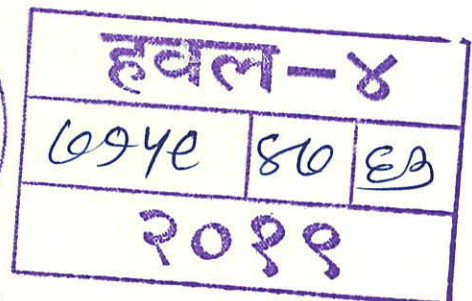 हवल-४
७१५९ ४७ ६३
२०१९